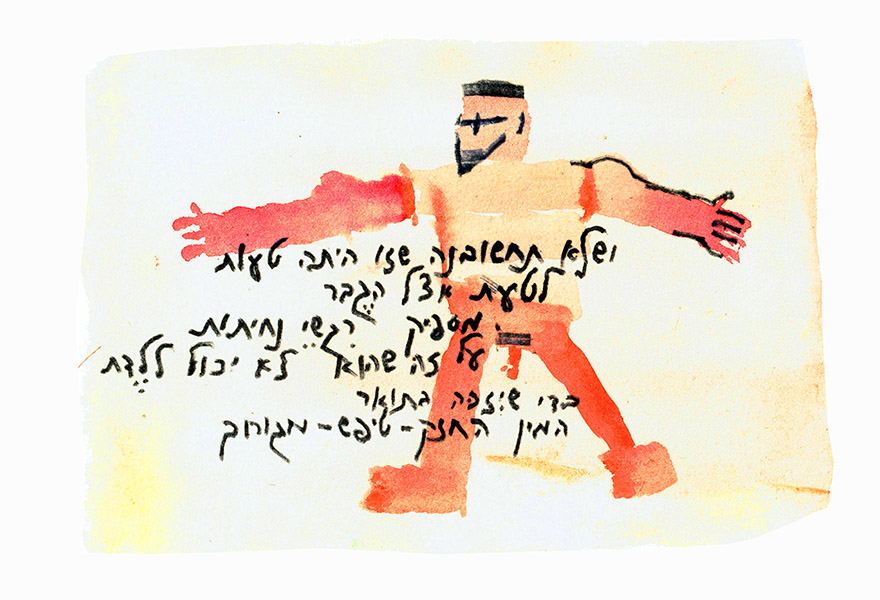 ושלא תחשובנה שזו היתה טעות
לטעת אצל הגֶבר
מספיק רִגשֵי נחיתות
על זה שהוא לא יכול ללֶדת
כדי שיזכה בתואר
המין החזק-טיפש-מגוחך